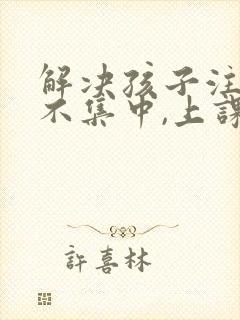 解决孩子注
不集中,上課
許喜林